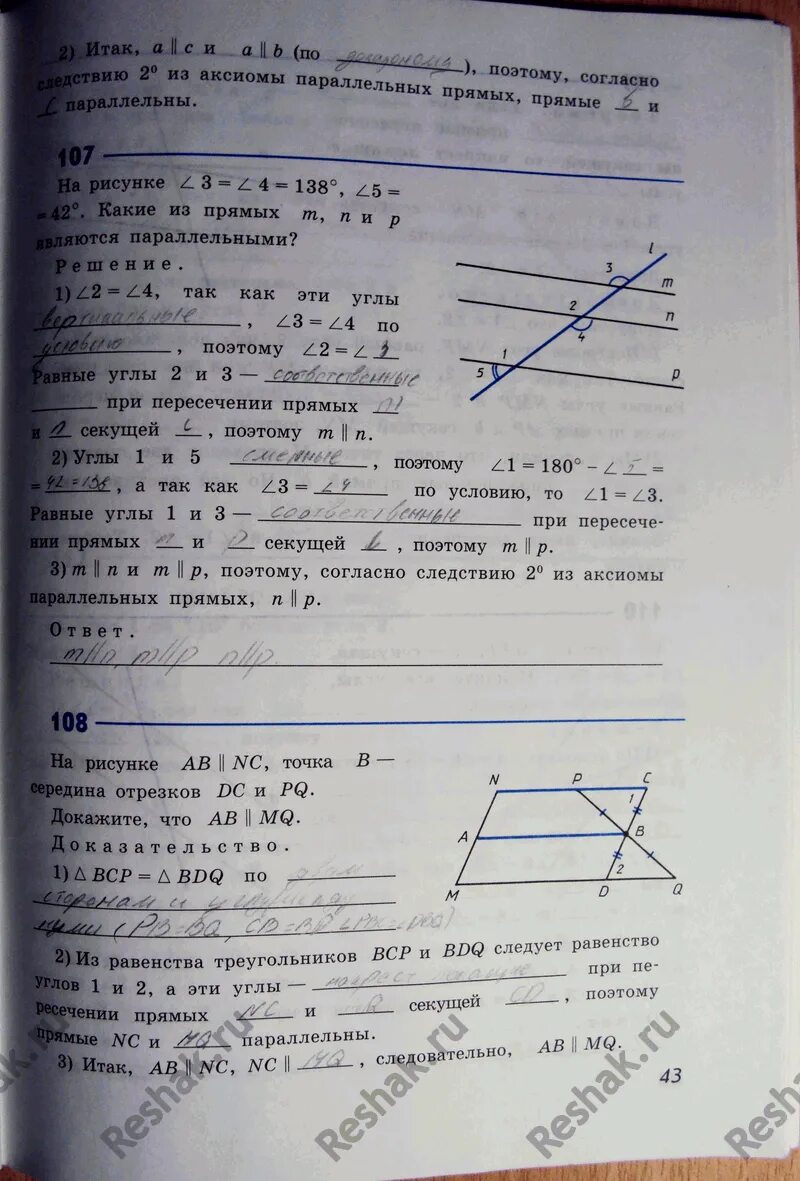 2) Итак, a ∥ c и a ∥ b (по доказанному), поэтому, согласно
следствию 2⁰ из аксиомы параллельных прямых, прямые b и
c параллельны.
107
На рисунке ∠ 3 = ∠ 4 = 138°, ∠5 =
= 42°. Какие из прямых m, n и p
являются параллельными?
Решение.
1) ∠2 = ∠4, так как эти углы
вертикальные, ∠3 = ∠4 по
условию, поэтому ∠2 = ∠ 3
Равные углы 2 и 3 — соответственные
при пересечении прямых m
и n секущей l, поэтому m ∥ n.
2) Углы 1 и 5 смежные, поэтому ∠1 = 180° – ∠ 5 =
= 42 = 138, а так как ∠3 = ∠ 4 по условию, то ∠1 = ∠3.
Равные углы 1 и 3 — соответственные при пересече-
нии прямых m и p секущей l, поэтому m ∥ p.
3) m ∥ n и m ∥ p, поэтому, согласно следствию 2⁰ из аксиомы
параллельных прямых, n ∥ p.
Ответ.
m//n, m//p n//p.
l
3
m
2
n
4
1
5
p
108
На рисунке AB ∥ NC, точка B —
середина отрезков DC и PQ.
Докажите, что AB ∥ MQ.
Доказательство.
1) △ BCP = △ BDQ по двум
сторонам и углу между
ними (PB=BQ, CB=
2) Из равенства треугольников BCP и BDQ следует равенство
углов 1 и 2, а эти углы — накрест лежащие при пе-
ресечении прямых NC и MQ секущей CD, поэтому
прямые NC и MQ параллельны.
3) Итак, AB ∥ NC, NC ∥ MQ, следовательно, AB ∥ MQ.
N P C
1
A B
2
M D Q
43
Reshak.ru
Reshak.ru
Reshak.ru
Reshak.ru